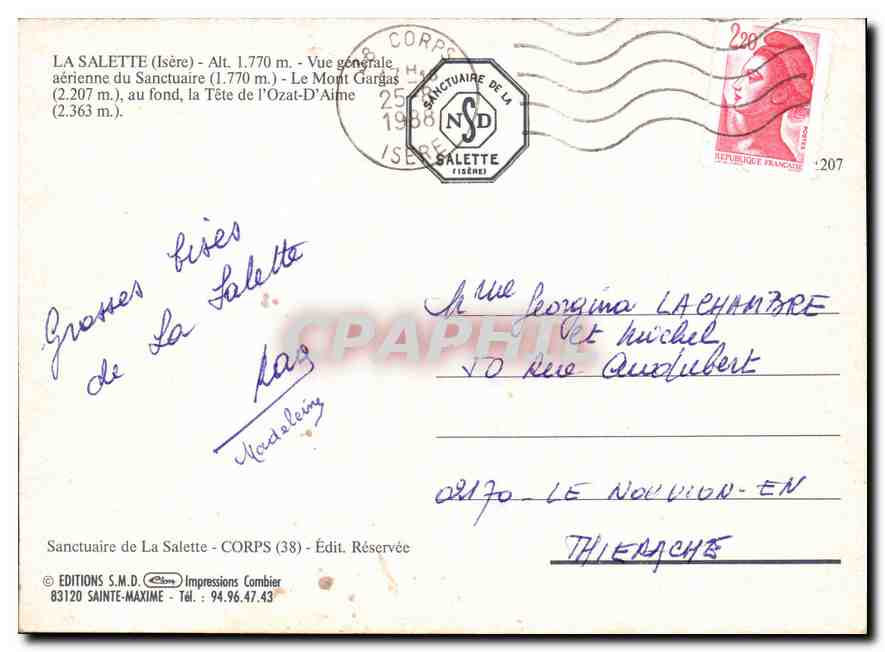 LA SALETTE (Isère) - Alt. 1.770 m. - Vue générale
aérienne du Sanctuaire (1.770 m.) - Le Mont Gargas
(2.207 m.), au fond, la Tête de l'Ozat-D'Aime
(2.363 m.).
38 CORPS
25-8
1988
ISERE
SANCTUAIRE DE LA
NSD
SALETTE
(ISÈRE)
2,20
POSTES
REPUBLIQUE FRANÇAISE
207
Grosses bises
de La Salette
Madeleine
Mme Georgina LACHAMBRE
et Michel
50 Rue Andubert
02170 - LE NOUVION-EN
THIERACHE
CPAPHIL
Sanctuaire de La Salette - CORPS (38) - Édit. Réservée
© EDITIONS S.M.D. Cim Impressions Combier
83120 SAINTE-MAXIME - Tél. : 94.96.47.43